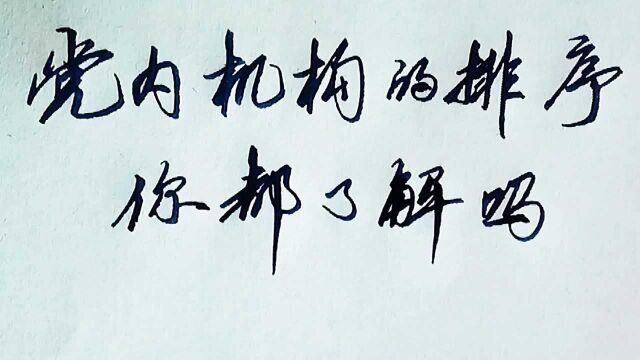 党内机构的排序
你都了解吗